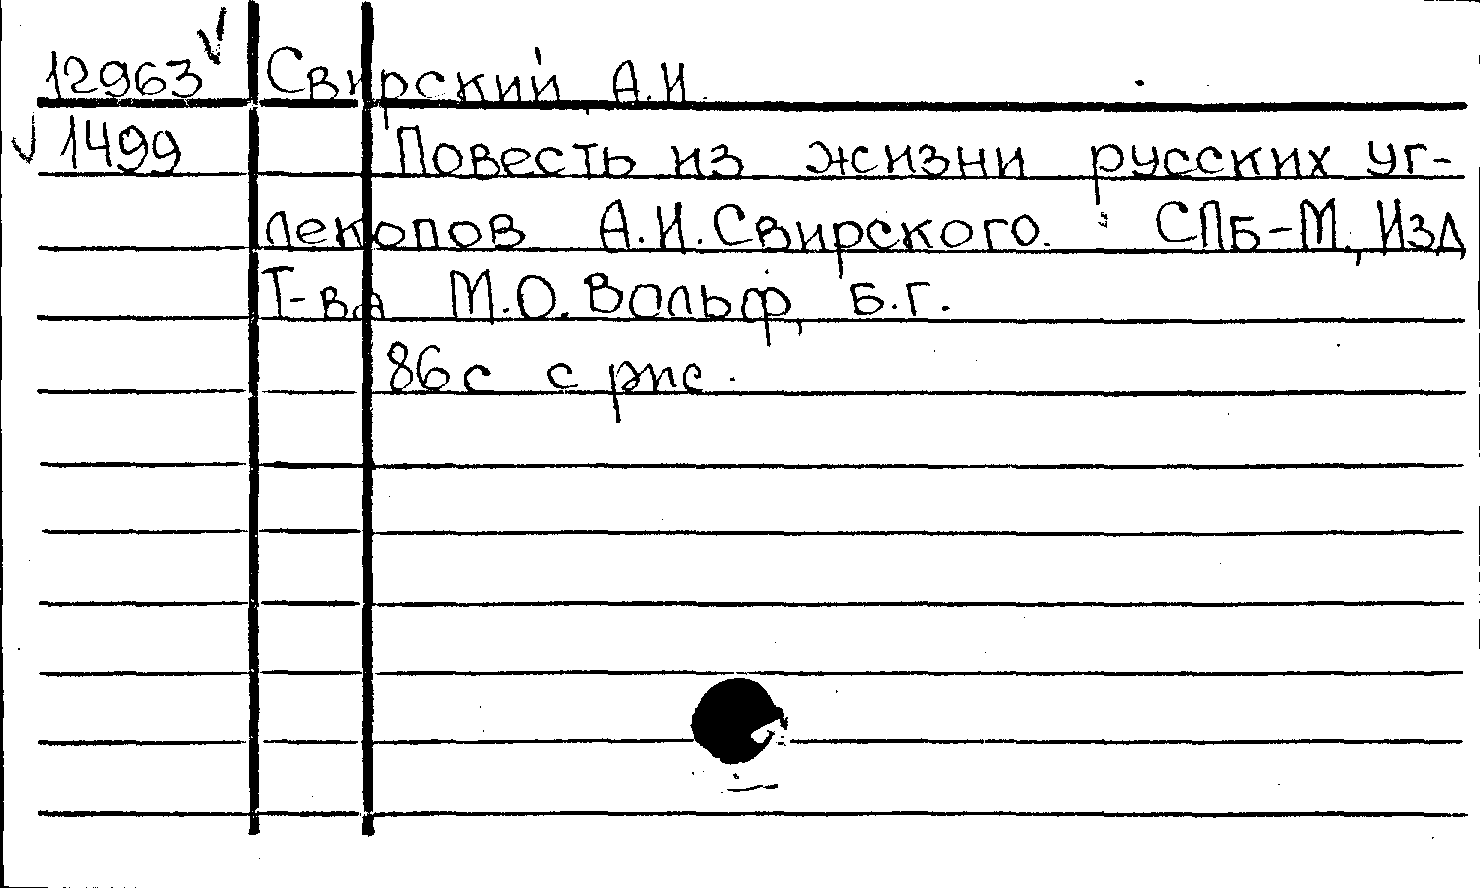 12963 Свирский А.И.
1499 Повесть из жизни русских уг-
лекопов А.И. Свирского. СПБ-М., Изд
Т-ва М.О. Вольф, б.г.
86с с рис.